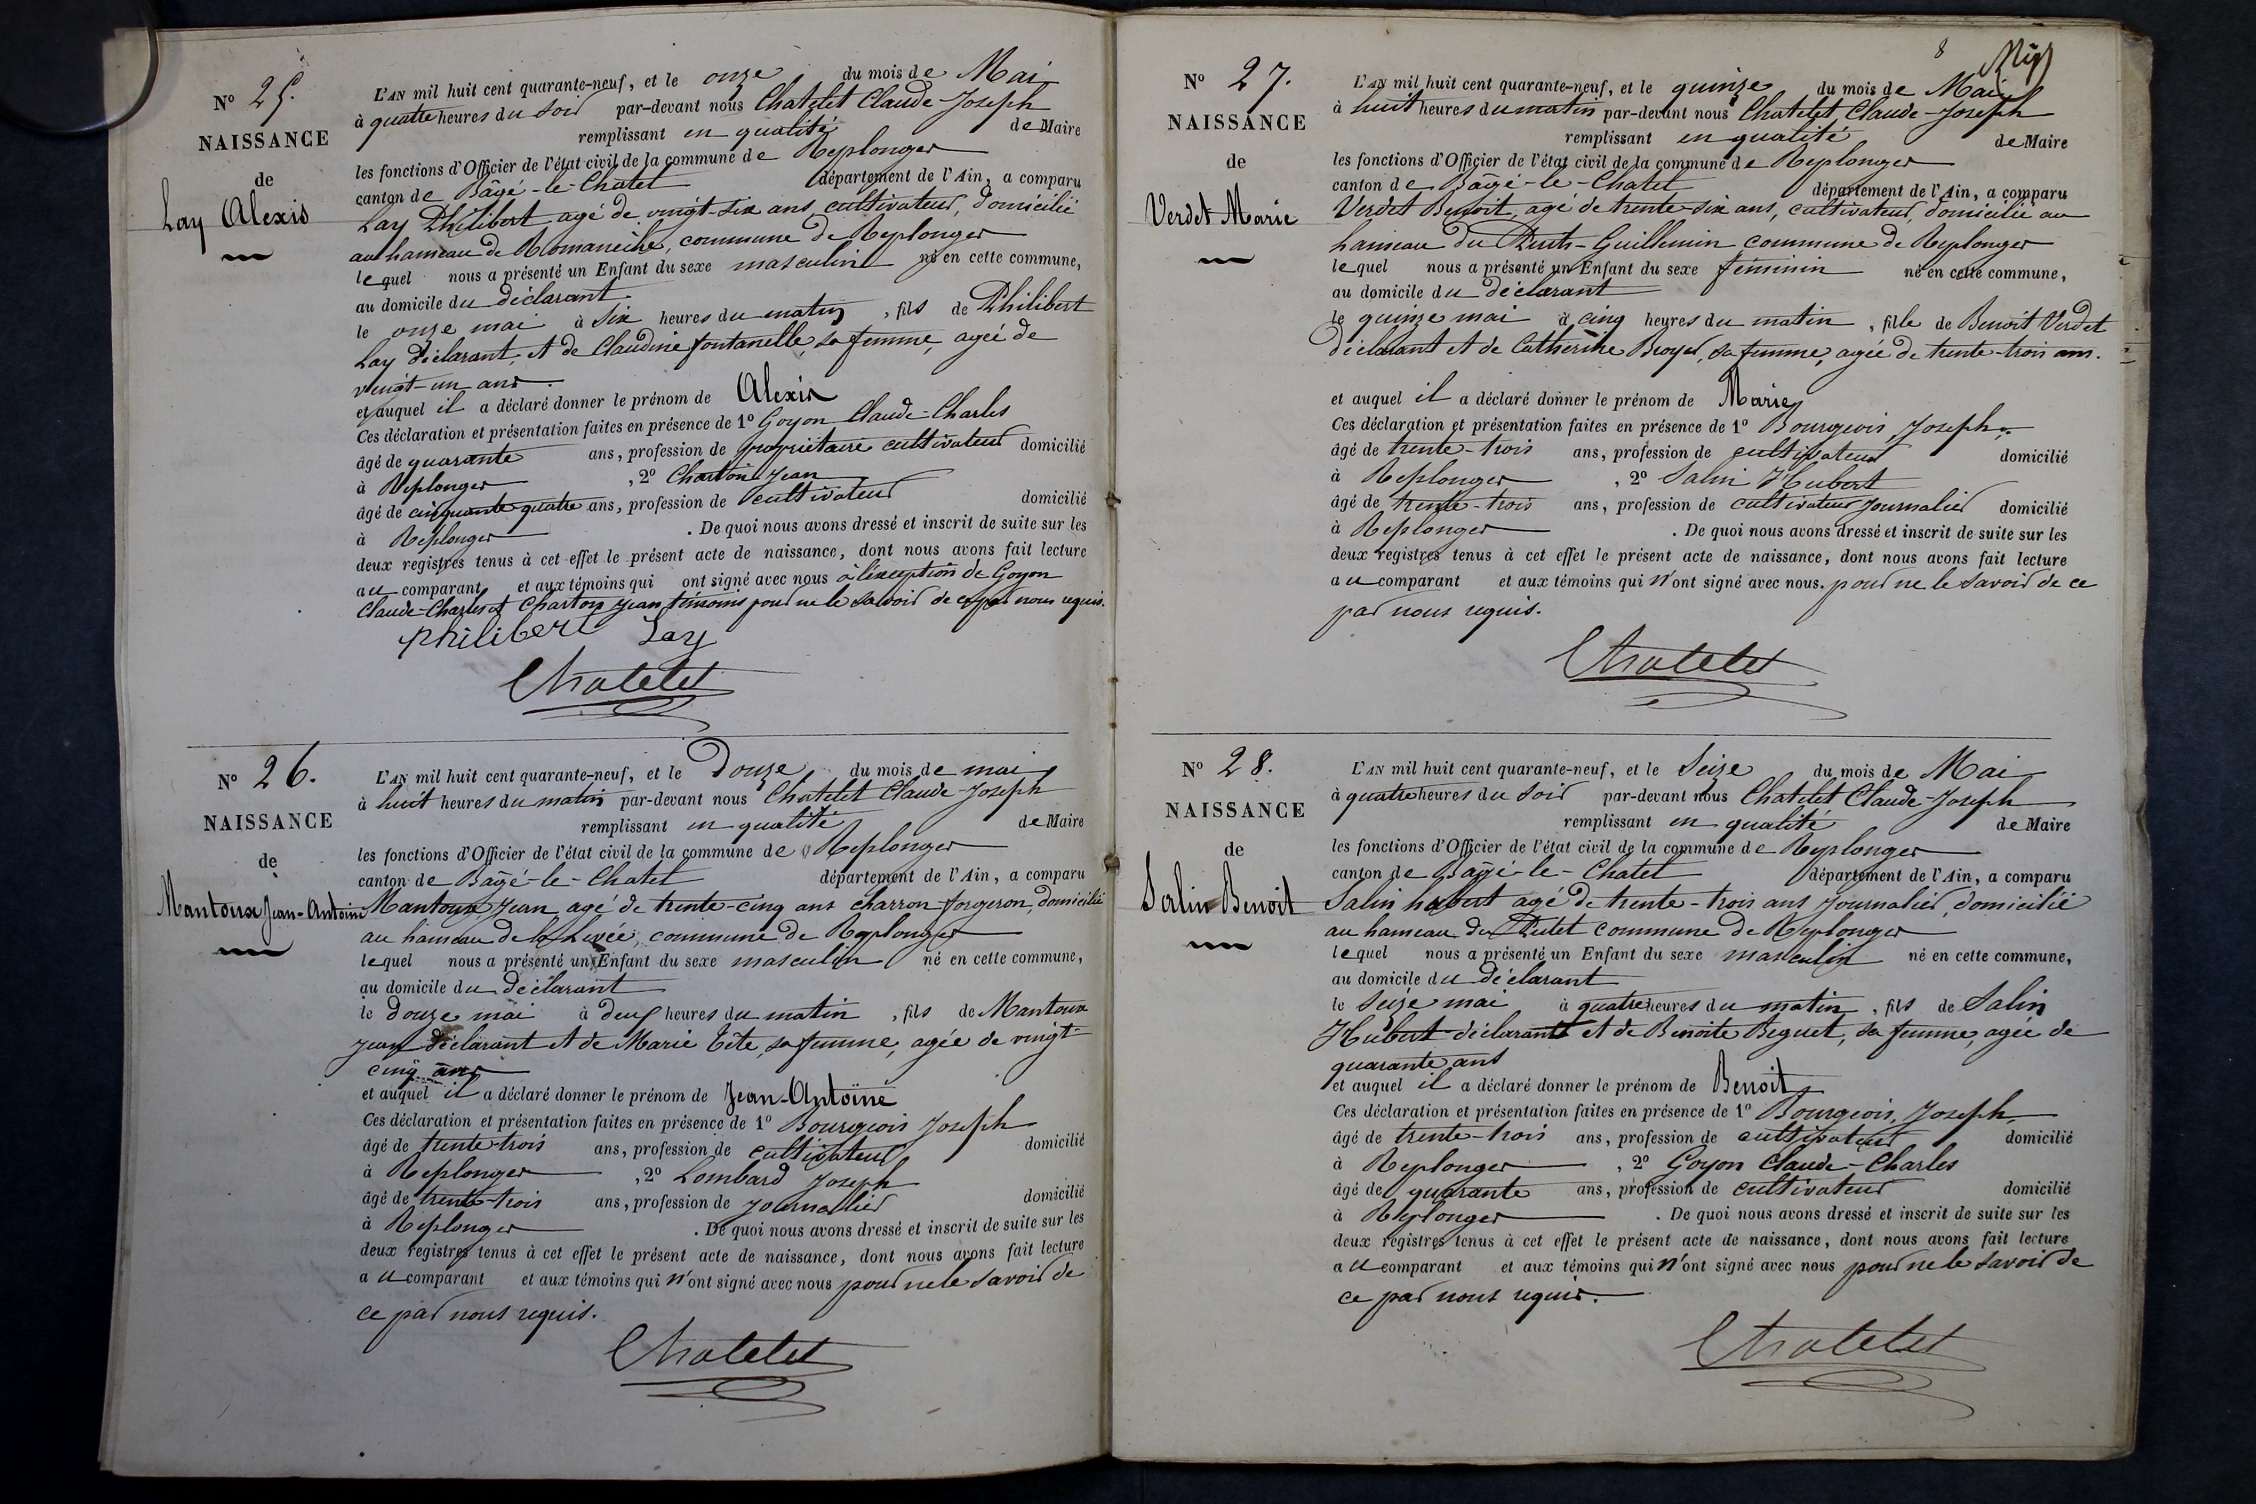 N° 25.
NAISSANCE
de
Lay Alexis
L'AN mil huit cent quarante-neuf, et le onze du mois de Mai
à quatre heures du soir par-devant nous Chatelet Claude-Joseph
remplissant en qualité de Maire
les fonctions d'Officier de l'état civil de la commune de Replonges
canton de Bâgé-le-Chatel département de l'Ain, a comparu
Lay Philibert agé de vingt-six ans cultivateur, domicilié
au hameau de Romanèche, commune de Replonges
lequel nous a présenté un Enfant du sexe masculin né en cette commune,
au domicile du déclarant
le onze mai à six heures du matin, fils de Philibert
Lay déclarant, et de Claudine fontanelle, sa femme, agée de
vingt-un ans.
et auquel il a déclaré donner le prénom de Alexis
Ces déclaration et présentation faites en présence de 1° Goyon Claude-Charles
âgé de quarante ans, profession de propriétaire cultivateur domicilié
à Replonges, 2° Charton Jean
âgé de cinquante quatre ans, profession de cultivateur domicilié
à Replonges. De quoi nous avons dressé et inscrit de suite sur les
deux registres tenus à cet effet le présent acte de naissance, dont nous avons fait lecture
au comparant et aux témoins qui ont signé avec nous à l'éxception de Goyon
Claude-Charles et Charton Jean témoins pour ne le savoir de ce par nous requis.
philibert Lay
Chatelet
N° 26.
NAISSANCE
de
Mantoux Jean-Antoine
L'AN mil huit cent quarante-neuf, et le Douze du mois de mai
à huit heures du matin par-devant nous Chatelet Claude-Joseph
remplissant en qualité de Maire
les fonctions d'Officier de l'état civil de la commune de Replonges
canton de Bâgé-le-Chatel département de l'Ain, a comparu
Mantoux Jean agé de trente-cinq ans charron forgeron, domicilié
au hameau de la Levée, commune de Replonges
lequel nous a présenté un Enfant du sexe masculin né en cette commune,
au domicile du déclarant
le douze mai à deux heures du matin, fils de Mantoux
Jean déclarant et de Marie Tête, sa femme, agée de vingt
cinq ans
et auquel il a déclaré donner le prénom de Jean-Antoine
Ces déclaration et présentation faites en présence de 1° Bourgeois Joseph
âgé de trente-trois ans, profession de cultivateur domicilié
à Replonges, 2° Lombard Joseph
âgé de trente-trois ans, profession de journalier domicilié
à Replonges. De quoi nous avons dressé et inscrit de suite sur les
deux registres tenus à cet effet le présent acte de naissance, dont nous avons fait lecture
au comparant et aux témoins qui n'ont signé avec nous pour ne le savoir de
ce par nous requis.
Chatelet
8
N° 27.
NAISSANCE
de
Verdet Marie
L'AN mil huit cent quarante-neuf, et le quinze du mois de Mai
à huit heures du matin par-devant nous Chatelet Claude-Joseph
remplissant en qualité de Maire
les fonctions d'Officier de l'état civil de la commune de Replonges
canton de Bâgé-le-Chatel département de l'Ain, a comparu
Verdet Benoit, agé de trente-six ans, cultivateur, domicilié au
hameau du Puits-Guillemin commune de Replonges
lequel nous a présenté un Enfant du sexe féminin né en cette commune,
au domicile du déclarant
le quinze mai à cinq heures du matin, fille de Benoit Verdet
déclarant et de Catherine Broyer, sa femme, agée de trente-trois ans.
et auquel il a déclaré donner le prénom de Marie
Ces déclaration et présentation faites en présence de 1° Bourgeois Joseph,
âgé de trente-trois ans, profession de cultivateur domicilié
à Replonges, 2° Salin Hubert
âgé de trente-trois ans, profession de cultivateur journalier domicilié
à Replonges. De quoi nous avons dressé et inscrit de suite sur les
deux registres tenus à cet effet le présent acte de naissance, dont nous avons fait lecture
au comparant et aux témoins qui n'ont signé avec nous. pour ne le savoir de ce
par nous requis.
Chatelet
N° 28.
NAISSANCE
de
Salin Benoit
L'AN mil huit cent quarante-neuf, et le Seize du mois de Mai
à quatre heures du soir par-devant nous Chatelet Claude-Joseph
remplissant en qualité de Maire
les fonctions d'Officier de l'état civil de la commune de Replonges
canton de Bâgé-le-Chatel département de l'Ain, a comparu
Salin hubert agé de trente-trois ans journalier, domicilié
au hameau du commune de Replonges
lequel nous a présenté un Enfant du sexe masculin né en cette commune,
au domicile du déclarant
le Seize mai à quatre heures du matin, fils de Salin
Hubert déclarant et de Benoite Beguet, sa femme, agée de
quarante ans
et auquel il a déclaré donner le prénom de Benoit
Ces déclaration et présentation faites en présence de 1° Bourgeois, Joseph,
âgé de trente-trois ans, profession de cultivateur domicilié
à Replonges, 2° Goyon Claude-Charles
âgé de quarante ans, profession de cultivateur domicilié
à Replonges. De quoi nous avons dressé et inscrit de suite sur les
deux registres tenus à cet effet le présent acte de naissance, dont nous avons fait lecture
au comparant et aux témoins qui n'ont signé avec nous pour ne le savoir de
ce par nous requis.
Chatelet